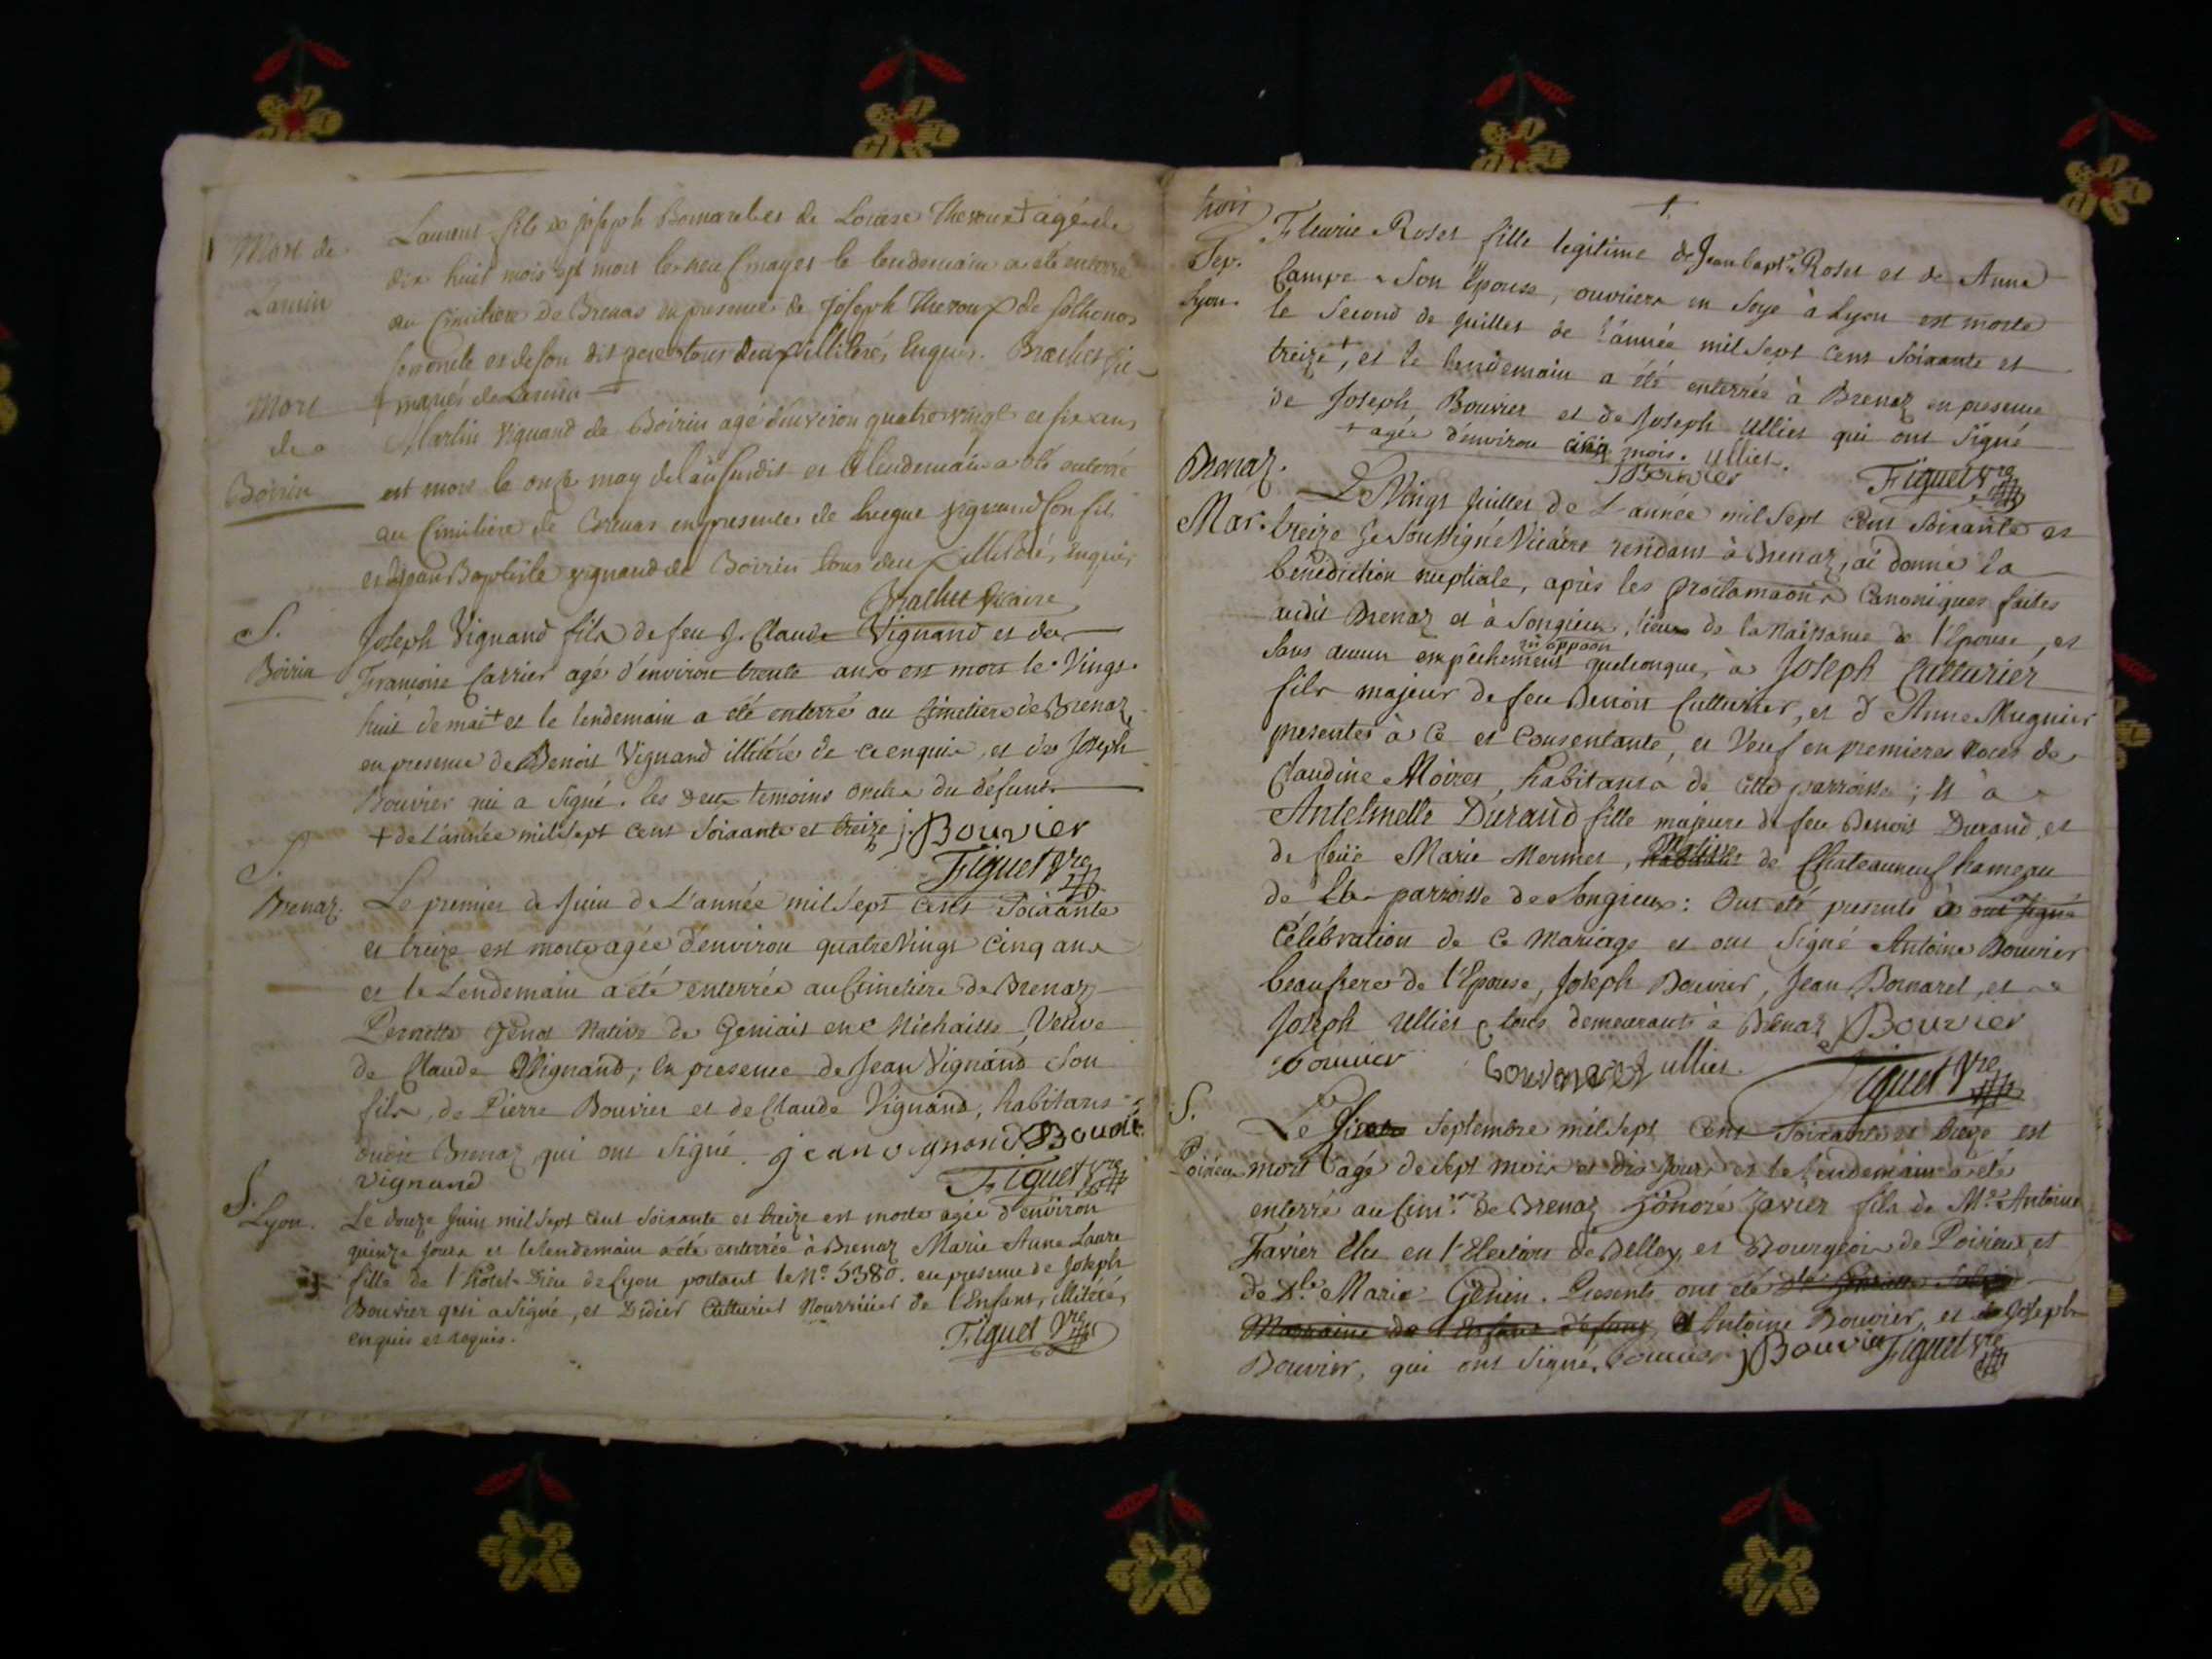 Mort de
Larnin
Laurent fils de joseph Bornarel et de Louise Theroux + agé de
dix huit mois est mort le neuf may et le lendemain a été enterré
au Cimitiere de Brenas en presence de Joseph Theroux de
et de son dit pere tous deux illiterés Enquis. Brachet
+ mariés de Larnin
Mort
de
Boirin
Martin Vignand de Boirin agé d'environ quatre vingt et six ans
est mort le onze may de l'an susdit et le lendemain a été enterré
au Cimitiere de Brenas en presence de vignand son fils
et Jean Baptiste vignand de Boirin tous deux illiteré, enquis
Brachet Vicaire
S.
Boirin
Joseph Vignand fils de feu J. Claude Vignand et de
Françoise Carrier agé d'environ trente ans est mort le Vingt
huit de mai + et le lendemain a été enterré au Cimetiere de Brenaz
en presence de Benoit Vignand illitéré de ce enquis, et de Joseph
Bouvier qui a signé. les deux temoins oncles du défunt.
+ de l'année mil sept cent soixante et treize j. Bouvier
Figuet Vre
S.
Brenaz.
Le premier de Juin de L'année mil sept cent soixante
et treize est morte agée d'environ quatre Vingt Cinq ans
et le Lendemain a été enterrée au Cimetiere de Brenaz
Pernette Genot Native de Geniais en Michaille, Veuve
de Claude Vignand; en presence de Jean Vignand son
fils, de Pierre Bouvier et de Claude Vignand, habitans
audit Brenaz, qui ont signé. jean vignand Bouvie
vignand
Figuet Vre
S.
Lyon.
Le douze Juin mil sept cent soixante et treize est morte agée d'environ
quinze Jours et le lendemain a été enterrée à Brenaz Marie Anne Laure
fille de l'Hotel-Dieu de Lyon portant le No. 5380. en presence de Joseph
Bouvier qui a signé, et Didier Cutturier Nourricier de l'Enfant, illitéré,
enquis et requis.
Figuet Vre
trois
+
Sep.
Lyon.
Fleurie Roset fille legitime de Jean bapte. Roset et de Anne
Campe son Epouse, ouvriers en Soye à Lyon est morte
le Second de Juillet de l'année mil sept cent soixante et
treize +, et le lendemain a été enterrée à Brenaz en presence
de Joseph Bouvier et de Joseph Ulliet qui ont signé
+ agée d'environ cinq mois. Ulliet.
JBouvier Figuet Vre
Brenaz.
Mar.
Le Vingt Juillet de L'année mil sept Cent soixante et
treize Je Soussigné Vicaire residant à Brenaz, ai donné la
bénédiction nuptiale, après les proclamaôns Canoniques faites
audit Brenaz et à Songieux, lieux de la Naissance de l'Epouse, et
ni oppôon
sans aucun empêchement quelconque, à Joseph Cutturier
fils majeur de feu Benoit Cutturier, et d'Anne Mugnier
presente à ce et Consentante, et Veuf en premieres noces de
Claudine Moiret, habitans de cette parroisse; et à
Antelmette Durand fille majeure de feu Benoit Durand, et
Native
de feüe Marie Mermet, de Chateauneuf hameau
de la parroisse de Songieux: Ont été presents à ont signé
Célébration de ce Mariage et ont signé Antoine Bouvier
beaufrere de l'Epouse, Joseph Bouvier, Jean Bornarel, et
Joseph Ulliet tous demeurants à Brenaz JBouvier
bouvier bournarel Jullier
Figuet Vre
S.
Poirieu
Le Septembre mil sept Cent soixante et treize est
mort agé de sept mois et dix jours et le lendemain a été
enterré au Cimre. de Brenaz Honoré Favier fils de Mre. Antoine
Favier Elu en l'Election de Belley, et Bourgeois de Poirieu, et
de Dlle. Marie Genin. Presents ont été
Marraine de l'Enfant défunt, et Antoine Bouvier, et de Joseph
Bouvier, qui ont signé. bouvier jBouvier Figuet Vre